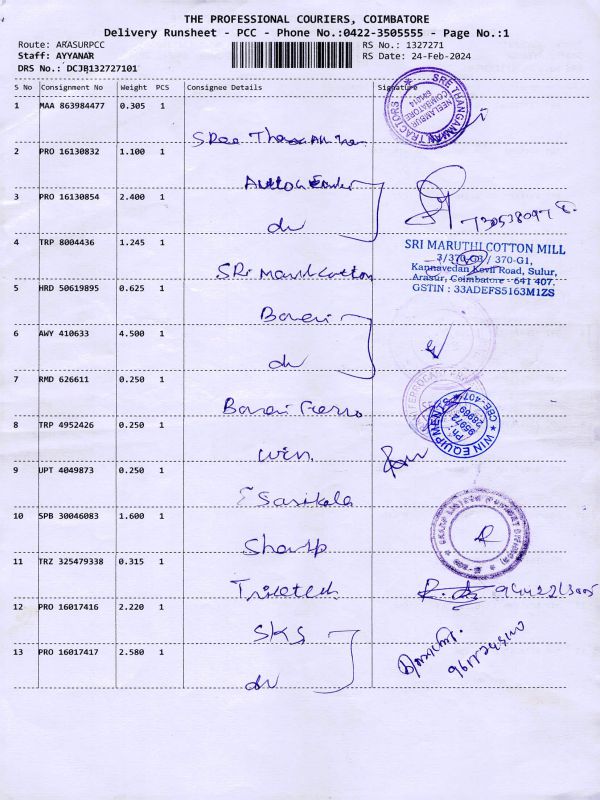 THE PROFESSIONAL COURIERS, COIMBATORE
Delivery Runsheet - PCC - Phone No.:0422-3505555 - Page No.:1
Route: ARASURPCC
RS No.: 1327271
Staff: AYYANAR
RS Date: 24-Feb-2024
DRS No.: DCJB132727101
S No Consignment No Weight PCS Consignee Details Signature
1 MAA 863984477 0.305 1
SRee
2 PRO 16130832 1.100 1
3 PRO 16130854 2.400 1
do
4 TRP 8004436 1.245 1
SRi Maruti Cotton
SRI MARUTHI COTTON MILL
3/370-G3 / 370-G1,
Kannavedan Kovil Road, Sulur,
Arasur, Coimbatore - 641 407.
GSTIN : 33ADEFS5163M1ZS
5 HRD 50619895 0.625 1
6 AWY 410633 4.500 1
do
7 RMD 626611 0.250 1
8 TRP 4952426 0.250 1
Win
WIN EQUIPMENTS
CBE-407
Ph :
95972
28909
9 UPT 4049873 0.250 1
Sasikala
10 SPB 30046083 1.600 1
Sharp
11 TRZ 325479338 0.315 1
12 PRO 16017416 2.220 1
SKS
13 PRO 16017417 2.580 1
do